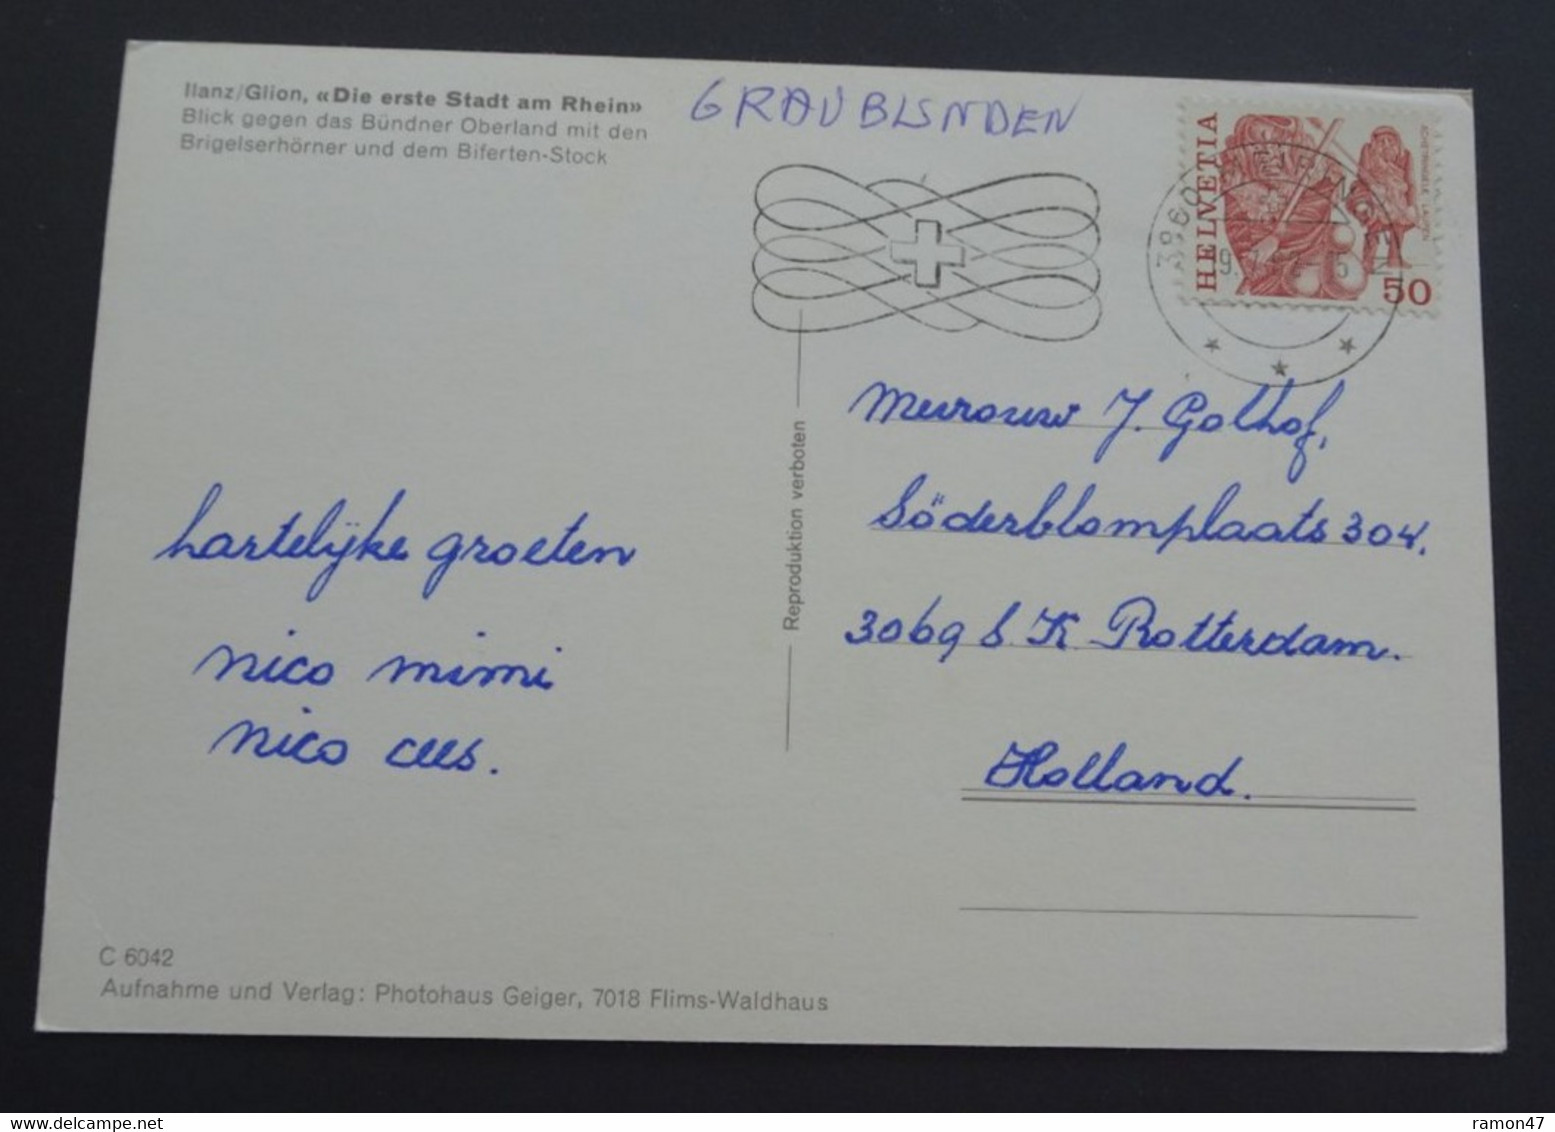 Ilanz/Glion, «Die erste Stadt am Rhein»
Blick gegen das Bündner Oberland mit den
Brigelserhörner und dem Biferten-Stock
GRAUBUNDEN
HELVETIA
ACHETRINGELE LAUPEN
50
3860 MEIRINGEN
Mevrouw J. Golhof,
Söderblomplaats 304.
3069 S.K Rotterdam.
Holland.
Reproduktion verboten
hartelijke groeten
nico mimi
nico cees.
C 6042
Aufnahme und Verlag: Photohaus Geiger, 7018 Flims-Waldhaus
ramon47